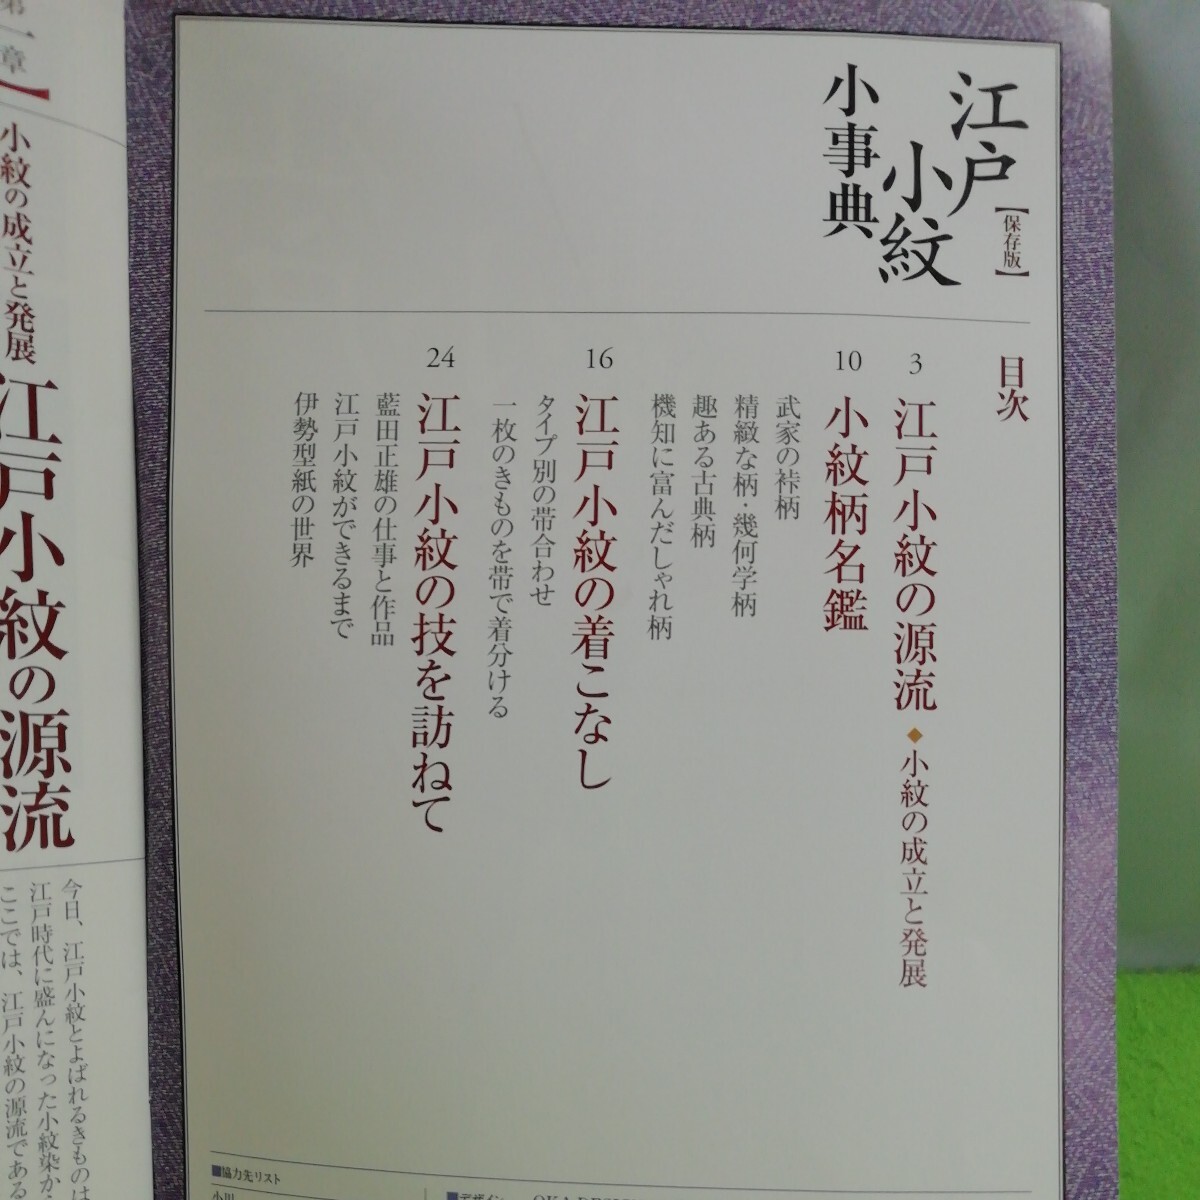 江戸小紋
小事典
【保存版】
目次
3 江戸小紋の源流◆小紋の成立と発展
10 小紋柄名鑑
武家の裃柄
精緻な柄・幾何学柄
趣ある古典柄
機知に富んだしゃれ柄
16 江戸小紋の着こなし
タイプ別の帯合わせ
一枚のきものを帯で着分ける
24 江戸小紋の技を訪ねて
藍田正雄の仕事と作品
江戸小紋ができるまで
伊勢型紙の世界
■協力先リスト
第一章】
小紋の成立と発展
江戸小紋の源流
今日、江戸小紋とよばれるきものは
江戸時代に盛んになった小紋染か
ここでは、江戸小紋の源流である